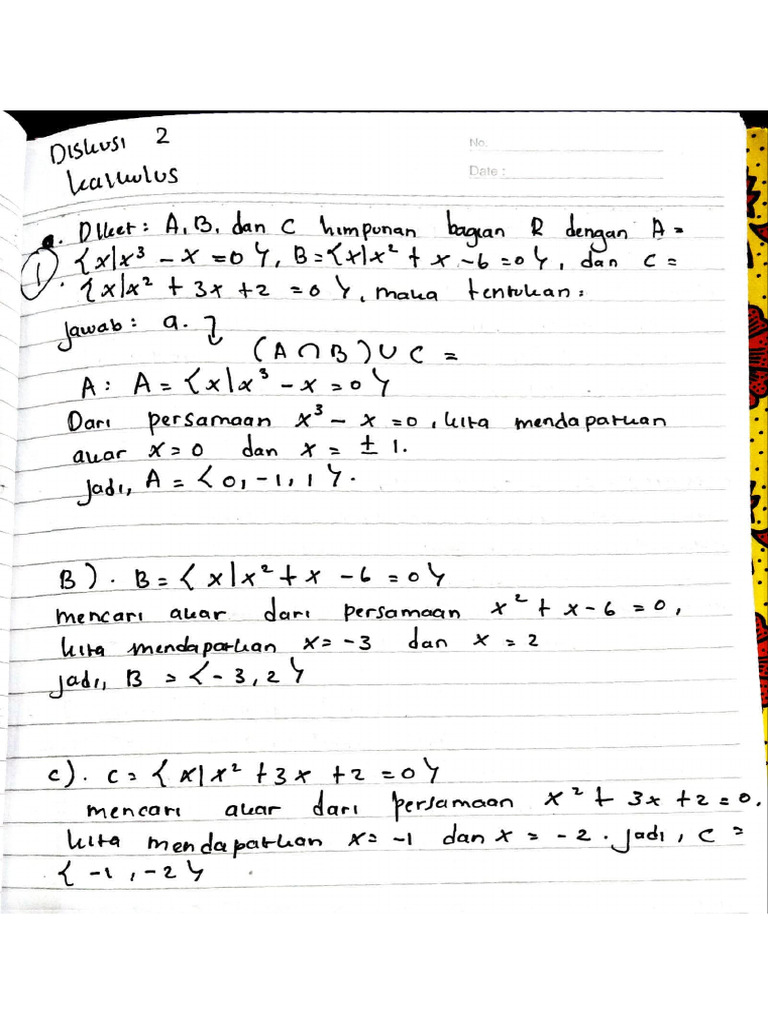 Diskusi 2
No.
Kalkulus
Date :
a. Diket: A, B, dan C himpunan bagian R dengan A =
1 {x|x³ - x = 0}, B = {x|x² + x - 6 = 0}, dan C =
. {x|x² + 3x + 2 = 0}, maka tentukan:
Jawab: a.
(A ∩ B) ∪ C =
A: A = {x|x³ - x = 0}
Dari persamaan x³ - x = 0, kita mendapatkan
akar x = 0 dan x = ± 1.
Jadi, A = {0, -1, 1}.
B). B = {x|x² + x - 6 = 0}
mencari akar dari persamaan x² + x - 6 = 0,
kita mendapatkan x = -3 dan x = 2
Jadi, B = {-3, 2}
C). C = {x|x² + 3x + 2 = 0}
mencari akar dari persamaan x² + 3x + 2 = 0.
kita mendapatkan x = -1 dan x = -2. Jadi, C =
{-1, -2}